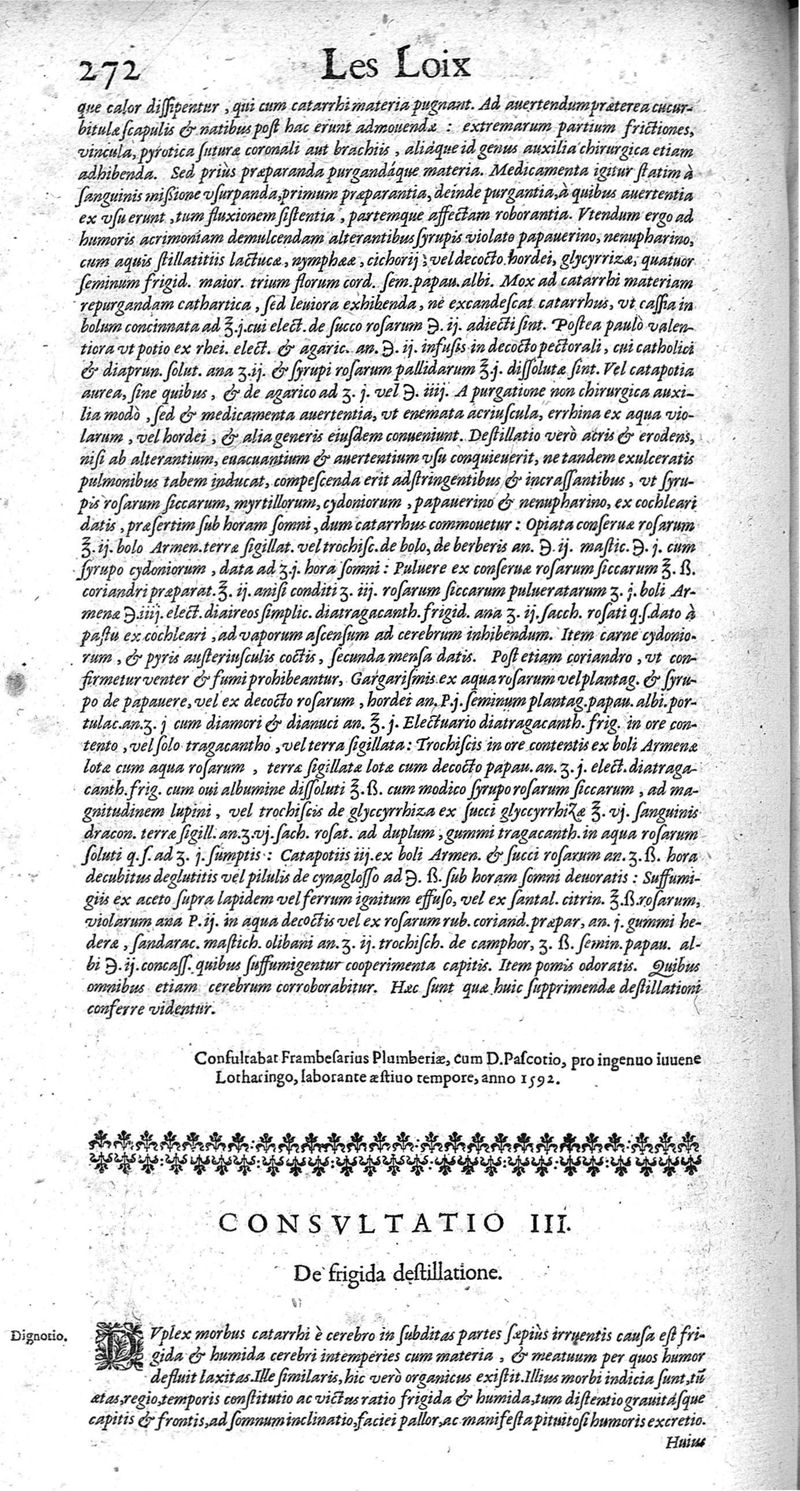 272 Les Loix
que calor dissipentur, qui cum catarrhi materia pugnant. Ad auertendum præterea cucur-
bitulæ scapulis & natibus post hac erunt admouendæ : extremarum partium frictiones,
vincula, pyrotica suturæ coronali aut brachiis, aliáque id genus auxilia chirurgica etiam
adhibenda. Sed priùs præparanda purgandáque materia. Medicamenta igitur statim à
sanguinis missione vsurpanda, primum præparantia, deinde purgantia, à quibus auertentia
ex vsu erunt, tum fluxionem sistentia, partemque affectam roborantia. Vtendum ergo ad
humoris acrimoniam demulcendam alterantibus syrupis violato papauerino, nenupharino,
cum aquis stillatitiis lactucæ, nymphææ, cichorij ; vel decocto hordei, glycyrrizæ, quatuor
seminum frigid. maior. trium florum cord. sem. papau. albi. Mox ad catarrhi materiam
repurgandam cathartica, sed leuiora exhibenda, nè excandescat catarrhus, vt cassia in
bolum concinnata ad ℥. j. cui elect. de succo rosarum ℈. ij. adiecti sint. Postea paulò valen-
tiora vt potio ex rhei. elect. & agaric. an. ℈. ij. infusis in decocto pectorali, cui catholici
& diaprun. solut. ana ʒ. ij. & syrupi rosarum pallidarum ℥. j. dissolutæ sint. Vel catapotia
aurea, sine quibus, & de agarico ad ʒ. j. vel ℈. iiij. A purgatione non chirurgica auxi-
lia modò, sed & medicamenta auertentia, vt enemata acriuscula, errhina ex aqua vio-
larum, vel hordei, & alia generis eiusdem conueniunt. Destillatio verò acris & erodens,
nisi ab alterantium, euacuantium & auertentium vsu conquieuerit, ne tandem exulceratis
pulmonibus tabem inducat, compescenda erit adstringentibus & incrassantibus, vt syru-
pis rosarum siccarum, myrtillorum, cydoniorum, papauerino & nenupharino, ex cochleari
datis, præsertim sub horam somni, dum catarrhus commouetur : Opiata conseruæ rosarum
℥. ij. bolo Armen. terræ sigillat. vel trochisc. de bolo, de berberis an. ℈. ij. mastic. ℈. j. cum
syrupo cydoniorum, data ad ʒ. j. hora somni : Puluere ex conseruæ rosarum siccarum ℥. ß.
coriandri præparat. ℥. ij. anisi conditi ʒ. iij. rosarum siccarum pulueratarum ʒ. j. boli Ar-
menæ ℈. iij. elect. diaireos simplic. diatragacanth. frigid. ana ʒ. ij. sacch. rosati q. s. dato à
pastu ex cochleari, ad vaporum ascensum ad cerebrum inhibendum. Item carne cydonio-
rum, & pyris austeriusculis coctis, secunda mensa datis. Post etiam coriandro, vt con-
firmetur venter & fumi prohibeantur, Gargarismis ex aqua rosarum vel plantag. & syru-
po de papauere, vel ex decocto rosarum, hordei an. P. j. seminum plantag. papau. albi. por-
tulac. an. ʒ. j cum diamori & dianuci an. ℥. j. Electuario diatragacanth. frig. in ore con-
tento, vel solo tragacantho, vel terra sigillata : Trochiscis in ore contentis ex boli Armenæ
lotæ cum aqua rosarum, terræ sigillatæ lotæ cum decocto papau. an. ʒ. j. elect. diatraga-
canth. frig. cum oui albumine dissoluti ℥. ß. cum modico syrupo rosarum siccarum, ad ma-
gnitudinem lupini, vel trochiscis de glyccyrrhiza ex succi glyccyrrhizæ ℥. vj. sanguinis
dracon. terræ sigill. an. ʒ. vj. sach. rosat. ad duplum, gummi tragacanth. in aqua rosarum
soluti q. s. ad ʒ. j. sumptis : Catapotiis iij. ex boli Armen. & succi rosarum an. ʒ. ß. hora
decubitus deglutitis vel pilulis de cynaglosso ad ℈. ß. sub horam somni deuoratis : Suffumi-
giis ex aceto supra lapidem vel ferrum ignitum effuso, vel ex santal. citrin. ℥. ß. rosarum,
violarum ana P. ij. in aqua decoctis vel ex rosarum rub. coriand. præpar, an. j. gummi he-
deræ, sandarac. mastich. olibani an. ʒ. ij. trochisch. de camphor, ʒ. ß. semin. papau. al-
bi ℈. ij. concass. quibus suffumigentur cooperimenta capitis. Item pomis odoratis. Quibus
omnibus etiam cerebrum corroborabitur. Hæc sunt quæ huic supprimendæ destillationi
conferre videntur.
Consultabat Frambesarius Plumberiæ, cum D. Pascotio, pro ingenuo iuuene
Lotharingo, laborante æstiuo tempore, anno 1592.
CONSVLTATIO III.
De frigida destillatione.
Dignotio.
DVplex morbus catarrhi è cerebro in subditas partes sæpiùs irruentis causa est fri-
gida & humida cerebri intemperies cum materia, & meatuum per quos humor
defluit laxitas. Ille similaris, hic verò organicus existit. Illius morbi indicia sunt, tū
ætas, regio, temporis constitutio ac victus ratio frigida & humida, tum distentio grauitásque
capitis & frontis, ad somnum inclinatio, faciei pallor, ac manifesta pituitosi humoris excretio.
Huius